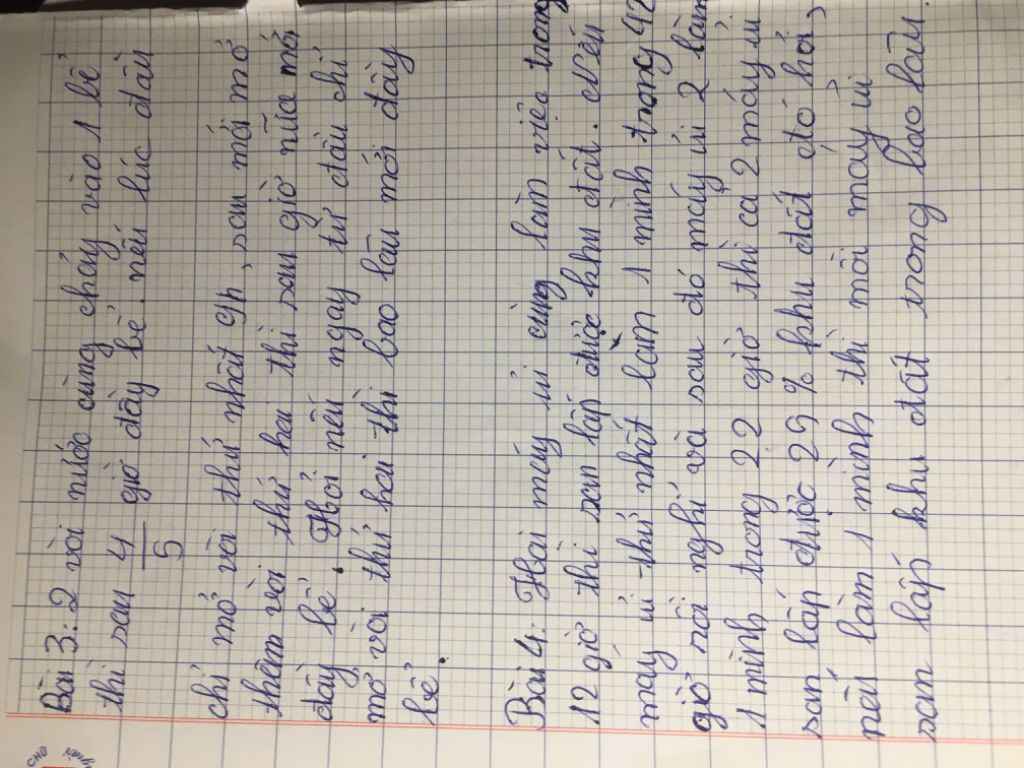 Bài 3: 2 vòi nước cùng chảy vào 1 bể
thì sau 4/5 giờ đầy bể. nếu lúc đầu
chỉ mở vòi thứ nhất 9h, sau mới mở
thêm vòi thứ hai thì sau giờ nữa mới
đầy bể. Hỏi nếu ngay từ đầu chỉ
mở vòi thứ hai thì bao lâu mới đầy
bể.
Bài 4: Hai máy ủi cùng làm việc trong
12 giờ thì san lấp được khu đất. Nếu
máy ủi thứ nhất làm 1 mình trong 42
giờ rồi nghỉ và sau đó máy ủi 2 làm
1 mình trong 22 giờ thì cả 2 máy ủi
san lấp được 25% khu đất đó hỏi,
nếu làm 1 mình thì mỗi máy ủi
san lấp khu đất trong bao lâu.
CHỮ